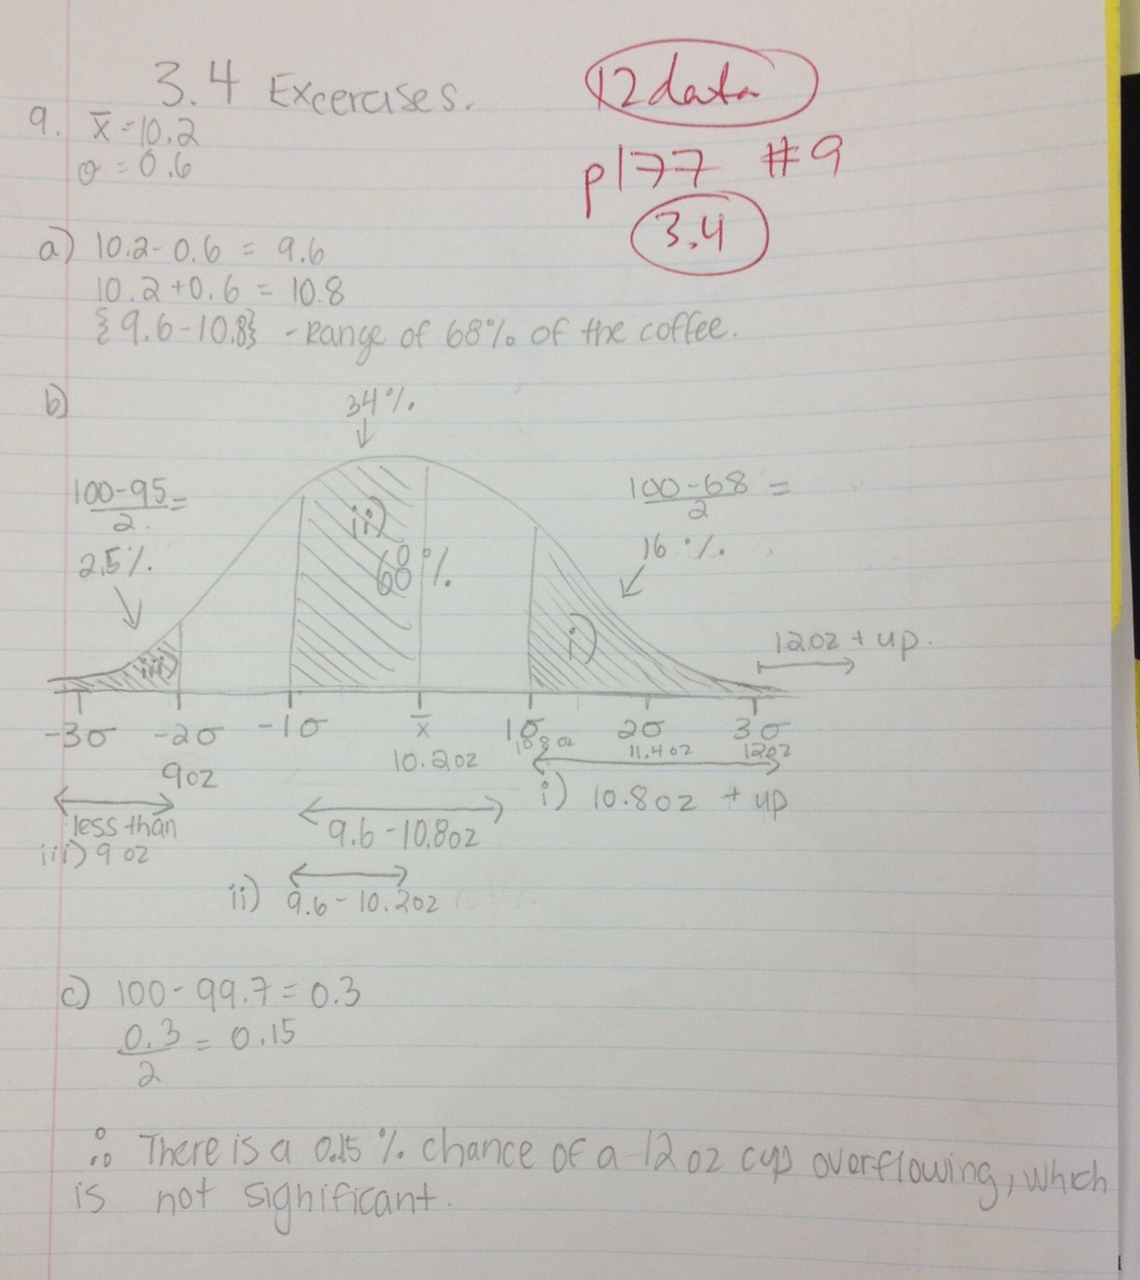 3.4 Excercises.
12 data
p177 #9
3.4
9. x̄ = 10.2
σ = 0.6
a) 10.2 - 0.6 = 9.6
10.2 + 0.6 = 10.8
{9.6 - 10.8} - Range of 68% of the coffee.
b)
34%
100-95 =
2
2.5%
100-68 =
2
16 %
ii)
68%
i)
iii)
12oz + up.
-3σ -2σ -1σ x̄ 1σ 2σ 3σ
9oz 10.2oz 10.8oz 11.4oz 12oz
i) 10.8oz + up
less than
iii) 9 oz
9.6 - 10.8oz
ii) 9.6 - 10.2oz
c) 100 - 99.7 = 0.3
0.3 = 0.15
2
∴ There is a 0.15 % chance of a 12 oz cup overflowing, which
is not significant.